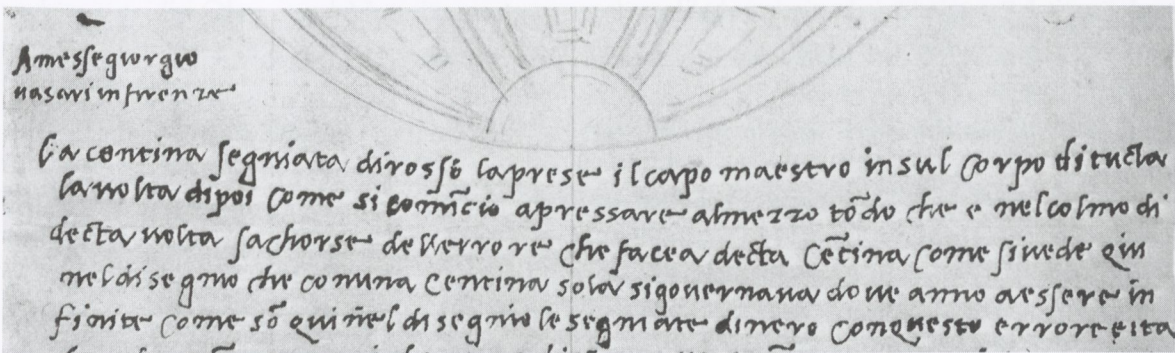 A messe giorgio
vasari in firenze
La centina segniata di rosso la prese il capo maestro in sul corpo di tucta
la uolta dipoi come si comīcio a pressare al mezzo tōdo che e nel colmo di
decta uolta sachorse dell errore che facea decta cētina come si uede qui
nel disegnio che con una centina sola si gouernaua doue anno a essere in
finite come sō qui nel disegnio le segniate di nero con questo errore e ita